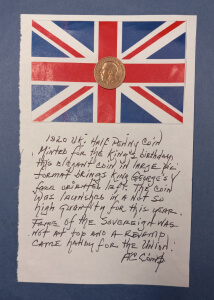 1920 UK: HALF PENNY COIN
MINTED FOR THE KING'S BIRTHDAY,
THIS ELEGANT COIN IN LARGE
FORMAT BRINGS KING GEORGE'S V
FACE ORIENTED LEFT. THE COIN
WAS LAUNCHED IN A NOT SO
HIGH QUANTITY FOR THIS YEAR.
FAME OF THE SOVEREIGN WAS
NOT AT TOP AND A REVAMP
CAME HANDY FOR THE UNION!